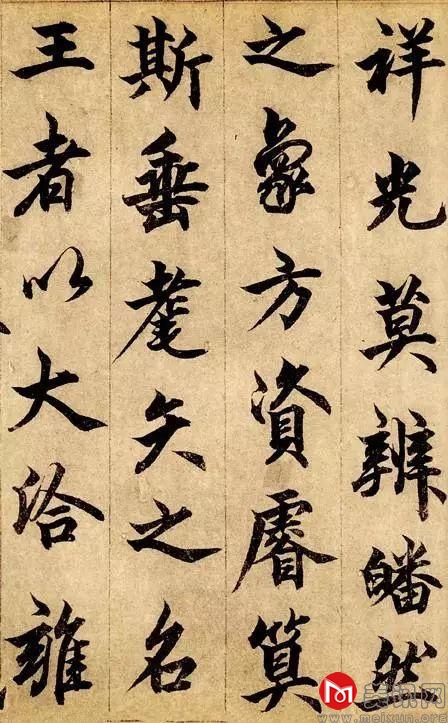 祥光莫辨皤然
之象方資睿算
斯垂耄矣之名
王者以大洽雖